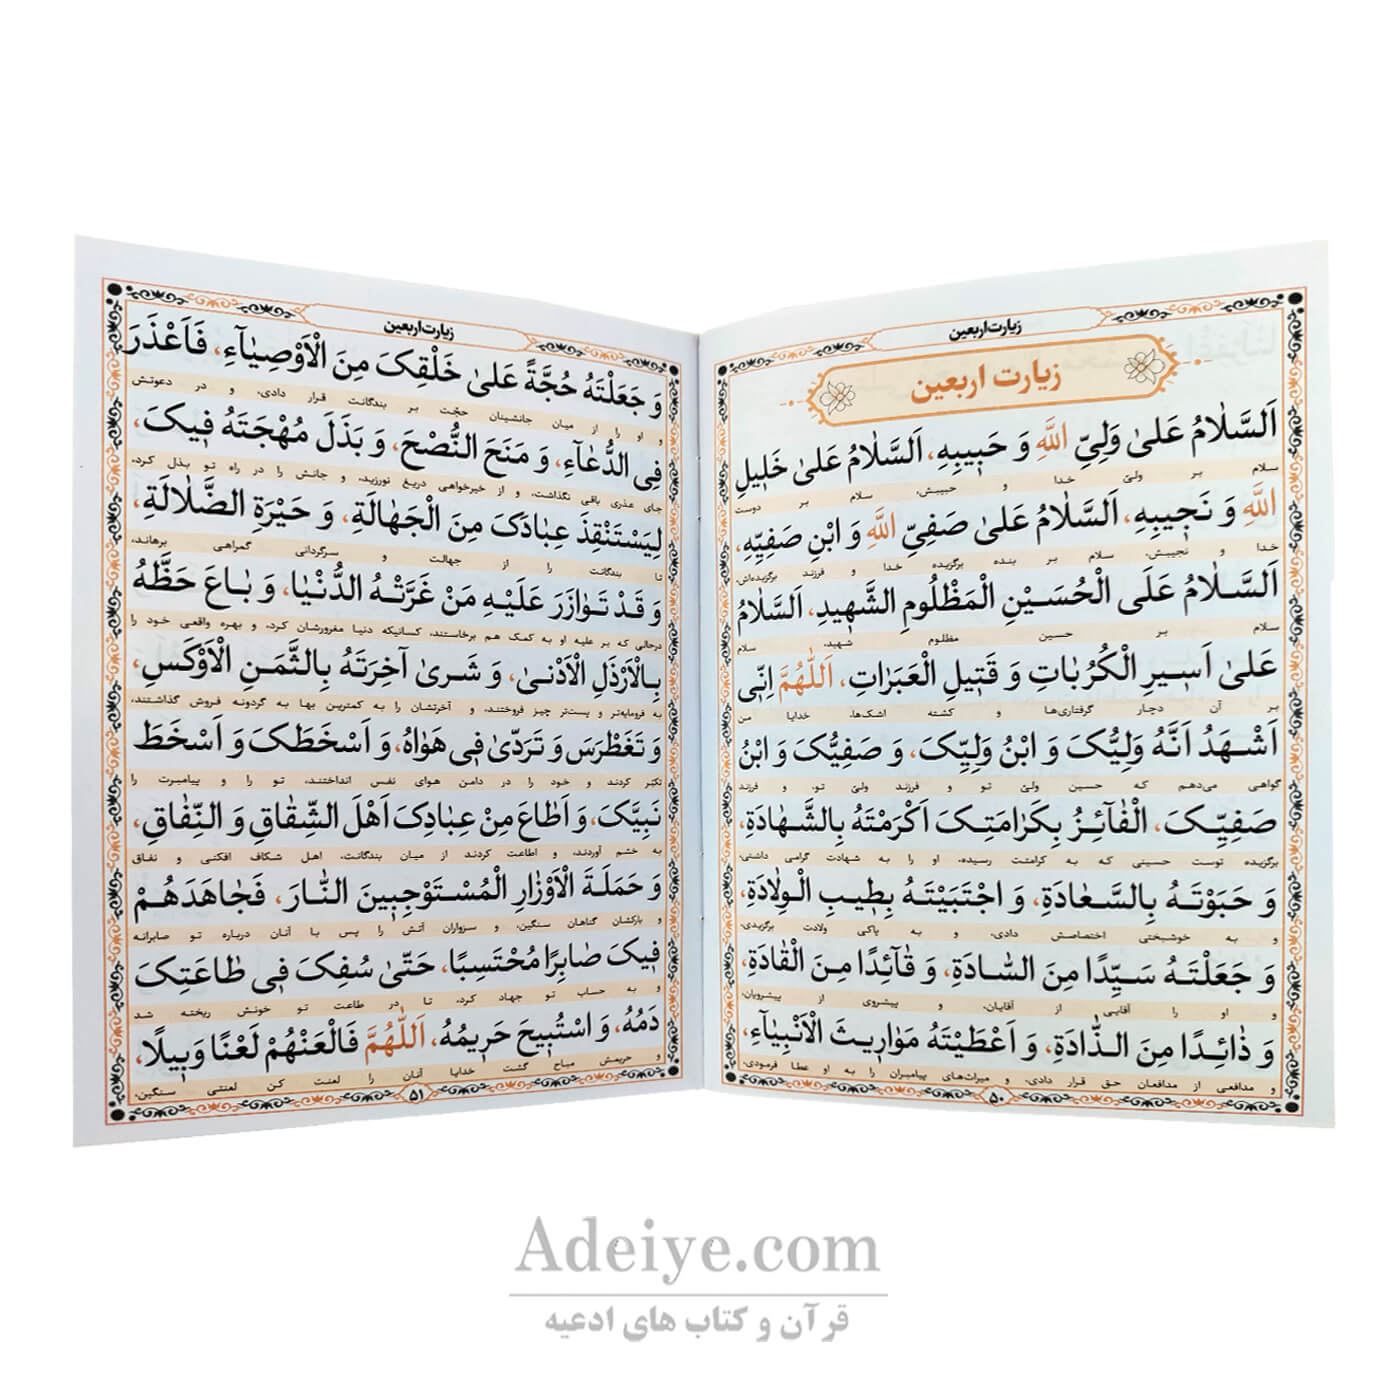 زیارت اربعین
زیارت اربعین
اَلسَّلٰامُ عَلیٰ وَلِیِّ اللّٰهِ وَ حَبٖیبِهِ، اَلسَّلٰامُ عَلیٰ خَلٖیلِ
سلام بر ولیّ خدا و حبیبش، سلام بر دوست
اللّٰهِ وَ نَجٖیبِهِ، اَلسَّلٰامُ عَلیٰ صَفِیِّ اللّٰهِ وَ ابْنِ صَفِیِّهِ،
خدا و نجیبش، سلام بر بنده برگزیده خدا و فرزند برگزیده‌اش،
اَلسَّلٰامُ عَلَی الْحُسَیْنِ الْمَظْلُومِ الشَّهٖیدِ، اَلسَّلٰامُ
سلام بر حسین مظلوم شهید، سلام
عَلیٰ اَسٖیرِ الْکُرُبٰاتِ وَ قَتٖیلِ الْعَبَرٰاتِ، اَللّٰهُمَّ اِنّٖی
بر آن دچار گرفتاری‌ها و کشته اشک‌ها، خدایا من
اَشْهَدُ اَنَّهُ وَلِیُّکَ وَ ابْنُ وَلِیِّکَ، وَ صَفِیُّکَ وَ ابْنُ
گواهی می‌دهم که حسین ولیّ تو و فرزند ولیّ تو، و فرزند
صَفِیِّکَ، الْفٰآئِزُ بِکَرٰامَتِکَ اَکْرَمْتَهُ بِالشَّهٰادَةِ،
برگزیده توست حسینی که به کرامتت رسیده، او را به شهادت گرامی داشتی،
وَ حَبَوْتَهُ بِالسَّعٰادَةِ، وَ اجْتَبَیْتَهُ بِطٖیبِ الْوِلٰادَةِ،
و به خوشبختی اختصاصش دادی، و به پاکی ولادت برگزیدی،
وَ جَعَلْتَهُ سَیِّدًا مِنَ السّٰادَةِ، وَ قٰآئِدًا مِنَ الْقٰادَةِ،
و او را آقایی از آقایان، و پیشروی از پیشرویان،
وَ ذٰائِدًا مِنَ الذّٰادَةِ، وَ اَعْطَیْتَهُ مَوٰارٖیثَ الْاَنْبِیٰآءِ،
و مدافعی از مدافعان حق قرار دادی، و میراث‌های پیامبران را به او عطا فرمودی،
۵۰
زیارت اربعین
وَ جَعَلْتَهُ حُجَّةً عَلیٰ خَلْقِکَ مِنَ الْاَوْصِیٰآءِ، فَاَعْذَرَ
و او را از میان جانشینان حجّت بر بندگانت قرار دادی، و در دعوتش
فِی الدُّعٰآءِ، وَ مَنَحَ النُّصْحَ، وَ بَذَلَ مُهْجَتَهُ فٖیکَ،
جای عذری باقی نگذاشت، و از خیرخواهی دریغ نورزید، و جانش را در راه تو بذل کرد،
لِیَسْتَنْقِذَ عِبٰادَکَ مِنَ الْجَهٰالَةِ، وَ حَیْرَةِ الضَّلٰالَةِ،
تا بندگانت را از جهالت و سرگردانی گمراهی برهاند،
وَ قَدْ تَوٰازَرَ عَلَیْهِ مَنْ غَرَّتْهُ الدُّنْیٰا، وَ بٰاعَ حَظَّهُ
درحالی که بر علیه او به کمک هم برخاستند، کسانیکه دنیا مغرورشان کرد، و بهره واقعی خود را
بِالْاَرْذَلِ الْاَدْنیٰ، وَ شَریٰ آخِرَتَهُ بِالثَّمَنِ الْاَوْکَسِ،
به فرومایه‌تر و پست‌تر چیز فروختند، و آخرتشان را به کمترین بها به گردونه فروش گذاشتند،
وَ تَغَطْرَسَ وَ تَرَدّیٰ فٖی هَوٰاهُ، وَ اَسْخَطَکَ وَ اَسْخَطَ
تکبّر کردند و خود را در دامن هوای نفس انداختند، تو را و پیامبرت را
نَبِیَّکَ، وَ اَطٰاعَ مِنْ عِبٰادِکَ اَهْلَ الشِّقٰاقِ وَ النِّفٰاقِ،
به خشم آوردند، و اطاعت کردند از میان بندگانت، اهل شکاف افکنی و نفاق
وَ حَمَلَةَ الْاَوْزٰارِ الْمُسْتَوْجِبٖینَ النّٰارَ، فَجٰاهَدَهُمْ
و بارکشان گناهان سنگین، و سزواران آتش را پس با آنان درباره تو صابرانه
فٖیکَ صٰابِرًا مُحْتَسِبًا، حَتّیٰ سُفِکَ فٖی طٰاعَتِکَ
و به حساب تو جهاد کرد، تا در طاعت تو خونش ریخته شد
دَمُهُ، وَ اسْتُبٖیحَ حَرٖیمُهُ، اَللّٰهُمَّ فَالْعَنْهُمْ لَعْنًا وَبٖیلًا،
و حریمش مباح گشت خدایا آنان را لعنت کن لعنتی سنگین،
۵۱
Adeiye.com
قرآن و کتاب های ادعیه